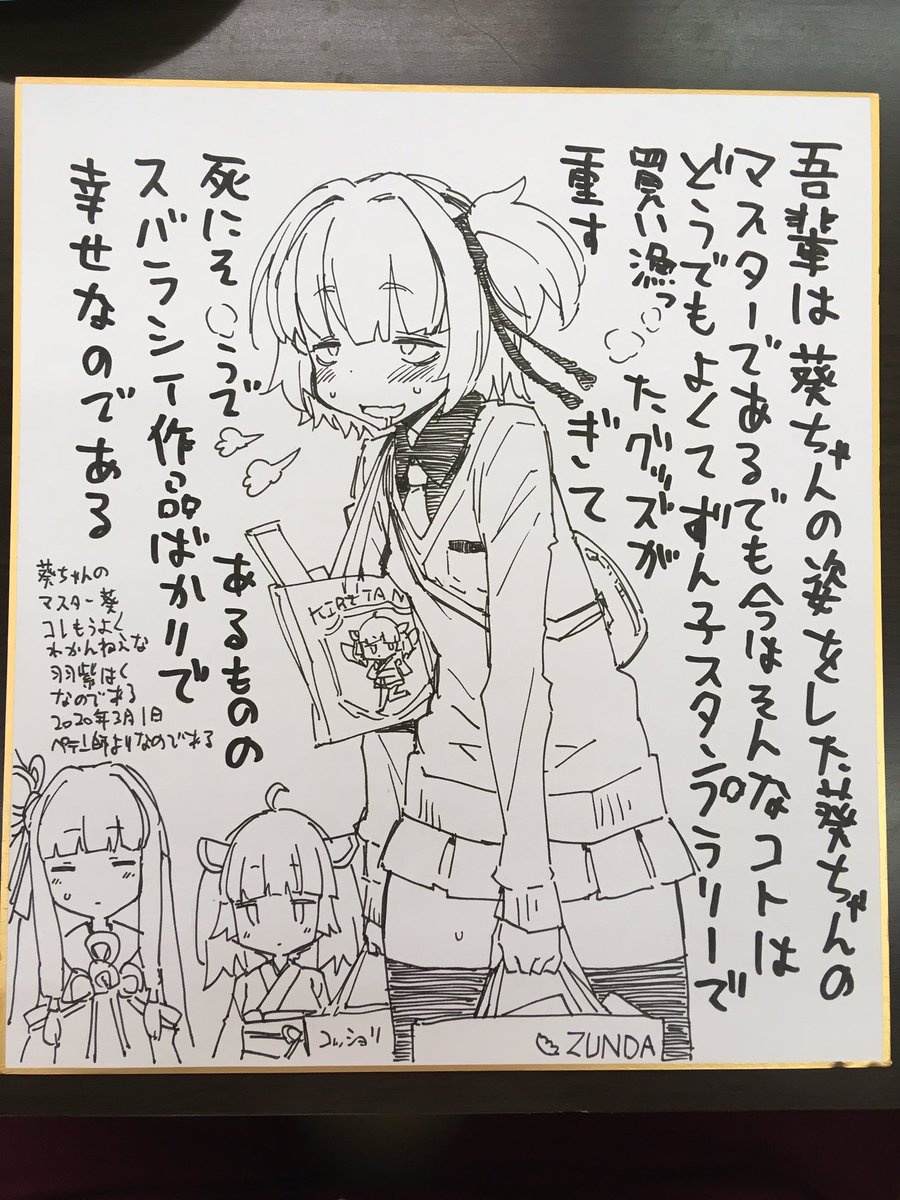 吾輩は葵ちゃんの姿をした葵ちゃんの
マスターであるでも今はそんなコトは
どうでもよくてずん子スタンプラリーで
買い漁ったグッズが
重すぎて
死にそうであるものの
スバラシイ作品ばかりで
幸せなのである
葵ちゃんの
マスター葵
コレもうよく
わかんねぇな
羽紫はく
なのである
2020年3月1日
ペテン師よりなのである
KIRITAN
コッショリ
ZUNDA